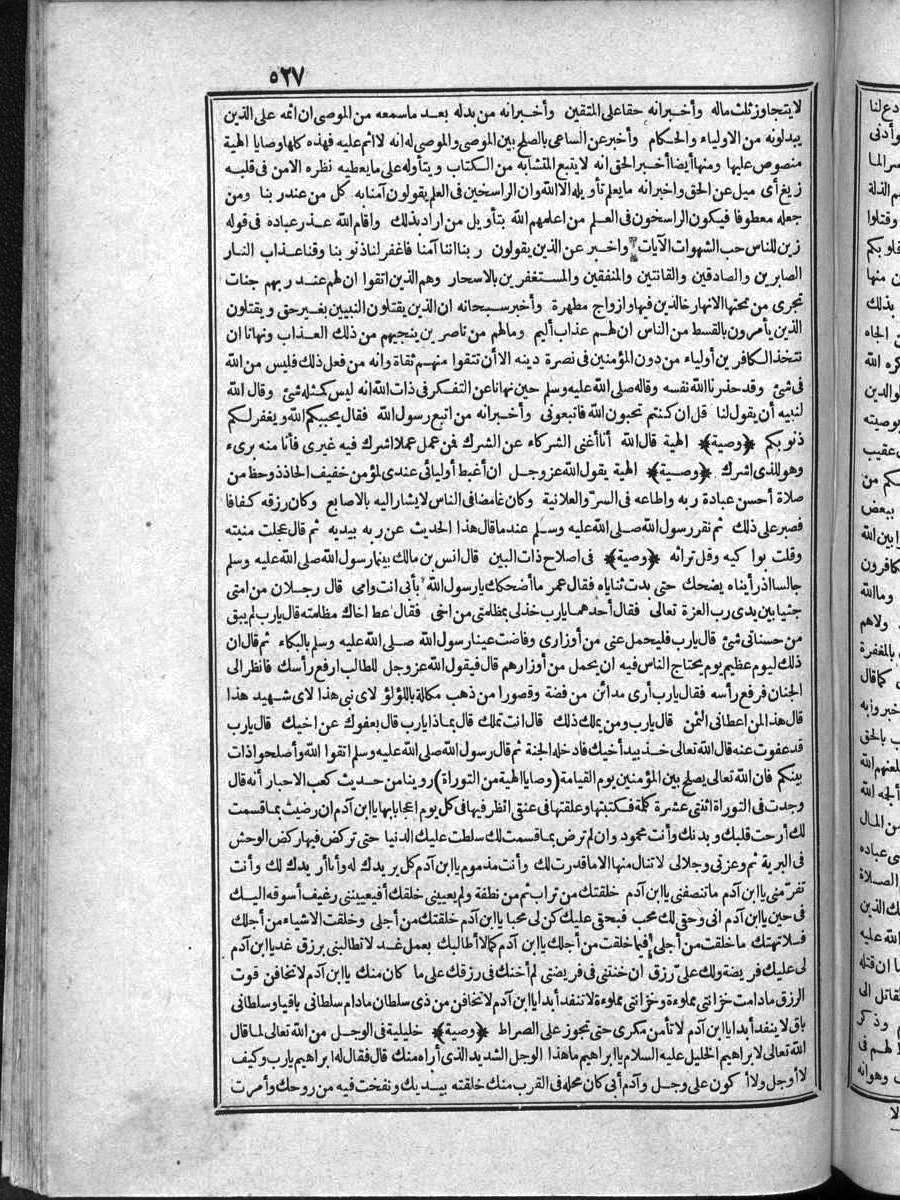 ٥٢٧
لا يتجاوز ثلث ماله وأخبر انه حقا على المتقين وأخبر انه من بدله بعد ما سمعه من الموصى ان اثمه على الذين
يبدلونه من الاولياء والحكام وأخبر عن الساعى بالصلح بين الموصى والموصى له انه لا اثم عليه فهذه كلها وصايا الهية
منصوص عليها ومنها أيضا أخبر الحق انه لا يتبع المتشابه من الكتاب ويتأوله على ما يعطيه نظره الامن فى قلبه
زيغ أى ميل عن الحق واخبر انه ما يعلم تأويله الا الله وان الراسخين فى العلم يقولون آمنا به كل من عند ربنا ومن
جعله معطوفا فيكون الراسخون فى العلم من اعلمهم الله بتأويل من اراد بذلك واقام الله عذر عباده فى قوله
زين للناس حب الشهوات الآيات واخبر عن الذين يقولون ربنا اننا آمنا فاغفر لنا ذنوبنا وقنا عذاب النار
الصابرين والصادقين والقانتين والمنفقين والمستغفرين بالاسحار وهم الذين اتقوا ان لهم عند ربهم جنات
تجرى من تحتها الانهار خالدين فيها وازواج مطهرة وأخبر سبحانه ان الذين يقتلون النبيين بغير حق ويقتلون
الذين يأمرون بالقسط من الناس ان لهم عذاب أليم ومالهم من ناصرين ينجيهم من ذلك العذاب ونهانا ان
نتخذ الكافرين أولياء من دون المؤمنين فى نصرة دينه الا أن نتقوا منهم ثقاة وانه من فعل ذلك فليس من الله
فى شئ وقد حذرنا الله نفسه وقاله صلى الله عليه وسلم حين نهانا عن التفكر فى ذات الله انه ليس كمثله شئ وقال الله
لنبيه أن يقول لنا قل ان كنتم تحبون الله فاتبعونى وأخبر انه من اتبع رسول الله فقال يحببكم الله ويغفر لكم
ذنوبكم ﴿وصية﴾ الهية قال الله أنا أغنى الشركاء عن الشرك فمن عمل عملا اشرك فيه غيرى فأنا منه برىء
وهو للذى اشرك ﴿وصية﴾ الهية يقول الله عز وجل ان أغبط أوليائى عندى لمؤمن خفيف الحاذ ذو حظ من
صلاة أحسن عبادة ربه واطاعه فى السر والعلانية وكان غامضا فى الناس لا يشار اليه بالاصابع وكان رزقه كفافا
فصبر على ذلك ثم نقر رسول الله صلى الله عليه وسلم عند ما قال هذا الحديث عن ربه بيديه ثم قال عجلت منيته
وقلت بواكيه وقل تراثه ﴿وصية﴾ فى اصلاح ذات البين قال انس بن مالك بينما رسول الله صلى الله عليه وسلم
جالسا اذ رأيناه يضحك حتى بدت ثناياه فقال عمر ما أضحكك يا رسول الله بأبى انت وامى قال رجلان من امتى
جثيا بين يدى رب العزة تعالى فقال أحدهما يارب خذ لى بمظلمتى من اخى فقال عط اخاك مظلمته قال يارب لم يبق
من حسناتى شئ قال يارب فليحمل عنى من أوزارى وفاضت عينا رسول الله صلى الله عليه وسلم بالبكاء ثم قال ان
ذلك ليوم عظيم يوم يحتاج الناس فيه ان يحمل من أوزارهم قال فيقول الله عز وجل للطالب ارفع رأسك فانظر الى
الجنان فرفع رأسه فقال يارب أرى مدائن من فضة وقصورا من ذهب مكللة باللؤلؤ لاى نبى هذا لاى شهيد هذا
قال هذا لمن اعطانى الثمن قال يارب ومن يملك ذلك قال انت تملك قال بماذا يارب قال بعفوك عن اخيك قال يارب
قد عفوت عنه قال الله تعالى خذ بيد أخيك فادخله الجنة ثم قال رسول الله صلى الله عليه وسلم اتقوا الله وأصلحوا ذات
بينكم فان الله تعالى يصلح بين المؤمنين يوم القيامة (وصايا الهية من التوراة) روينا من حديث كعب الاحبار أنه قال
وجدت فى التوراة اثنتى عشرة كلمة فكتبتها وعلقتها فى عنقى انظر فيها فى كل يوم اعجابا بها يا ابن آدم ان رضيت بما قسمت
لك أرحت قلبك وبدنك وأنت محمود وان لم ترض بما قسمت لك سلطت عليك الدنيا حتى تركض فيها ركض الوحش
فى البرية ثم وعزتى وجلالى لا تنال منها الا ما قدرت لك وأنت مذموم يا ابن آدم كل يريدك له وأنا أريدك لك وأنت
تفر منى يا ابن آدم ما تنصفنى يا ابن آدم خلقتك من تراب ثم من نطفة ولم يعينى خلقك أفيعيينى رغيف أسوقه اليك
فى حين يا ابن آدم انى وحقى لك محب فبحقى عليك كن لى محبا يا ابن آدم خلقتك من أجلى وخلقت الاشياء من أجلك
فلا تهتك ما خلقت من أجلى فيما خلقت من أجلك يا ابن آدم كما لا أطالبك بعمل غد لا تطالبنى برزق غد يا ابن آدم
لى عليك فريضة ولك على رزق ان خنتنى فى فريضتى لم أخنك فى رزقك على ما كان منك يا ابن آدم لا تخافن فوت
الرزق ما دامت خزائنى مملوءة وخزائنى مملوءة لا تنفد أبدا يا ابن آدم لا تخافن من ذى سلطان مادام سلطانى باقيا وسلطانى
باق لا ينفد أبدا يا ابن آدم لا تأمن مكرى حتى تجوز على الصراط ﴿وصية﴾ خليلية فى الوجل من الله تعالى لما قال
الله تعالى لابراهيم الخليل عليه السلام يا ابراهيم ما هذا الوجل الشديد الذى أراه منك قال فقال له ابراهيم يارب وكيف
لا أوجل ولا أكون على وجل وآدم أبى كان محله فى القرب منك خلقته بيديك ونفخت فيه من روحك وأمرت